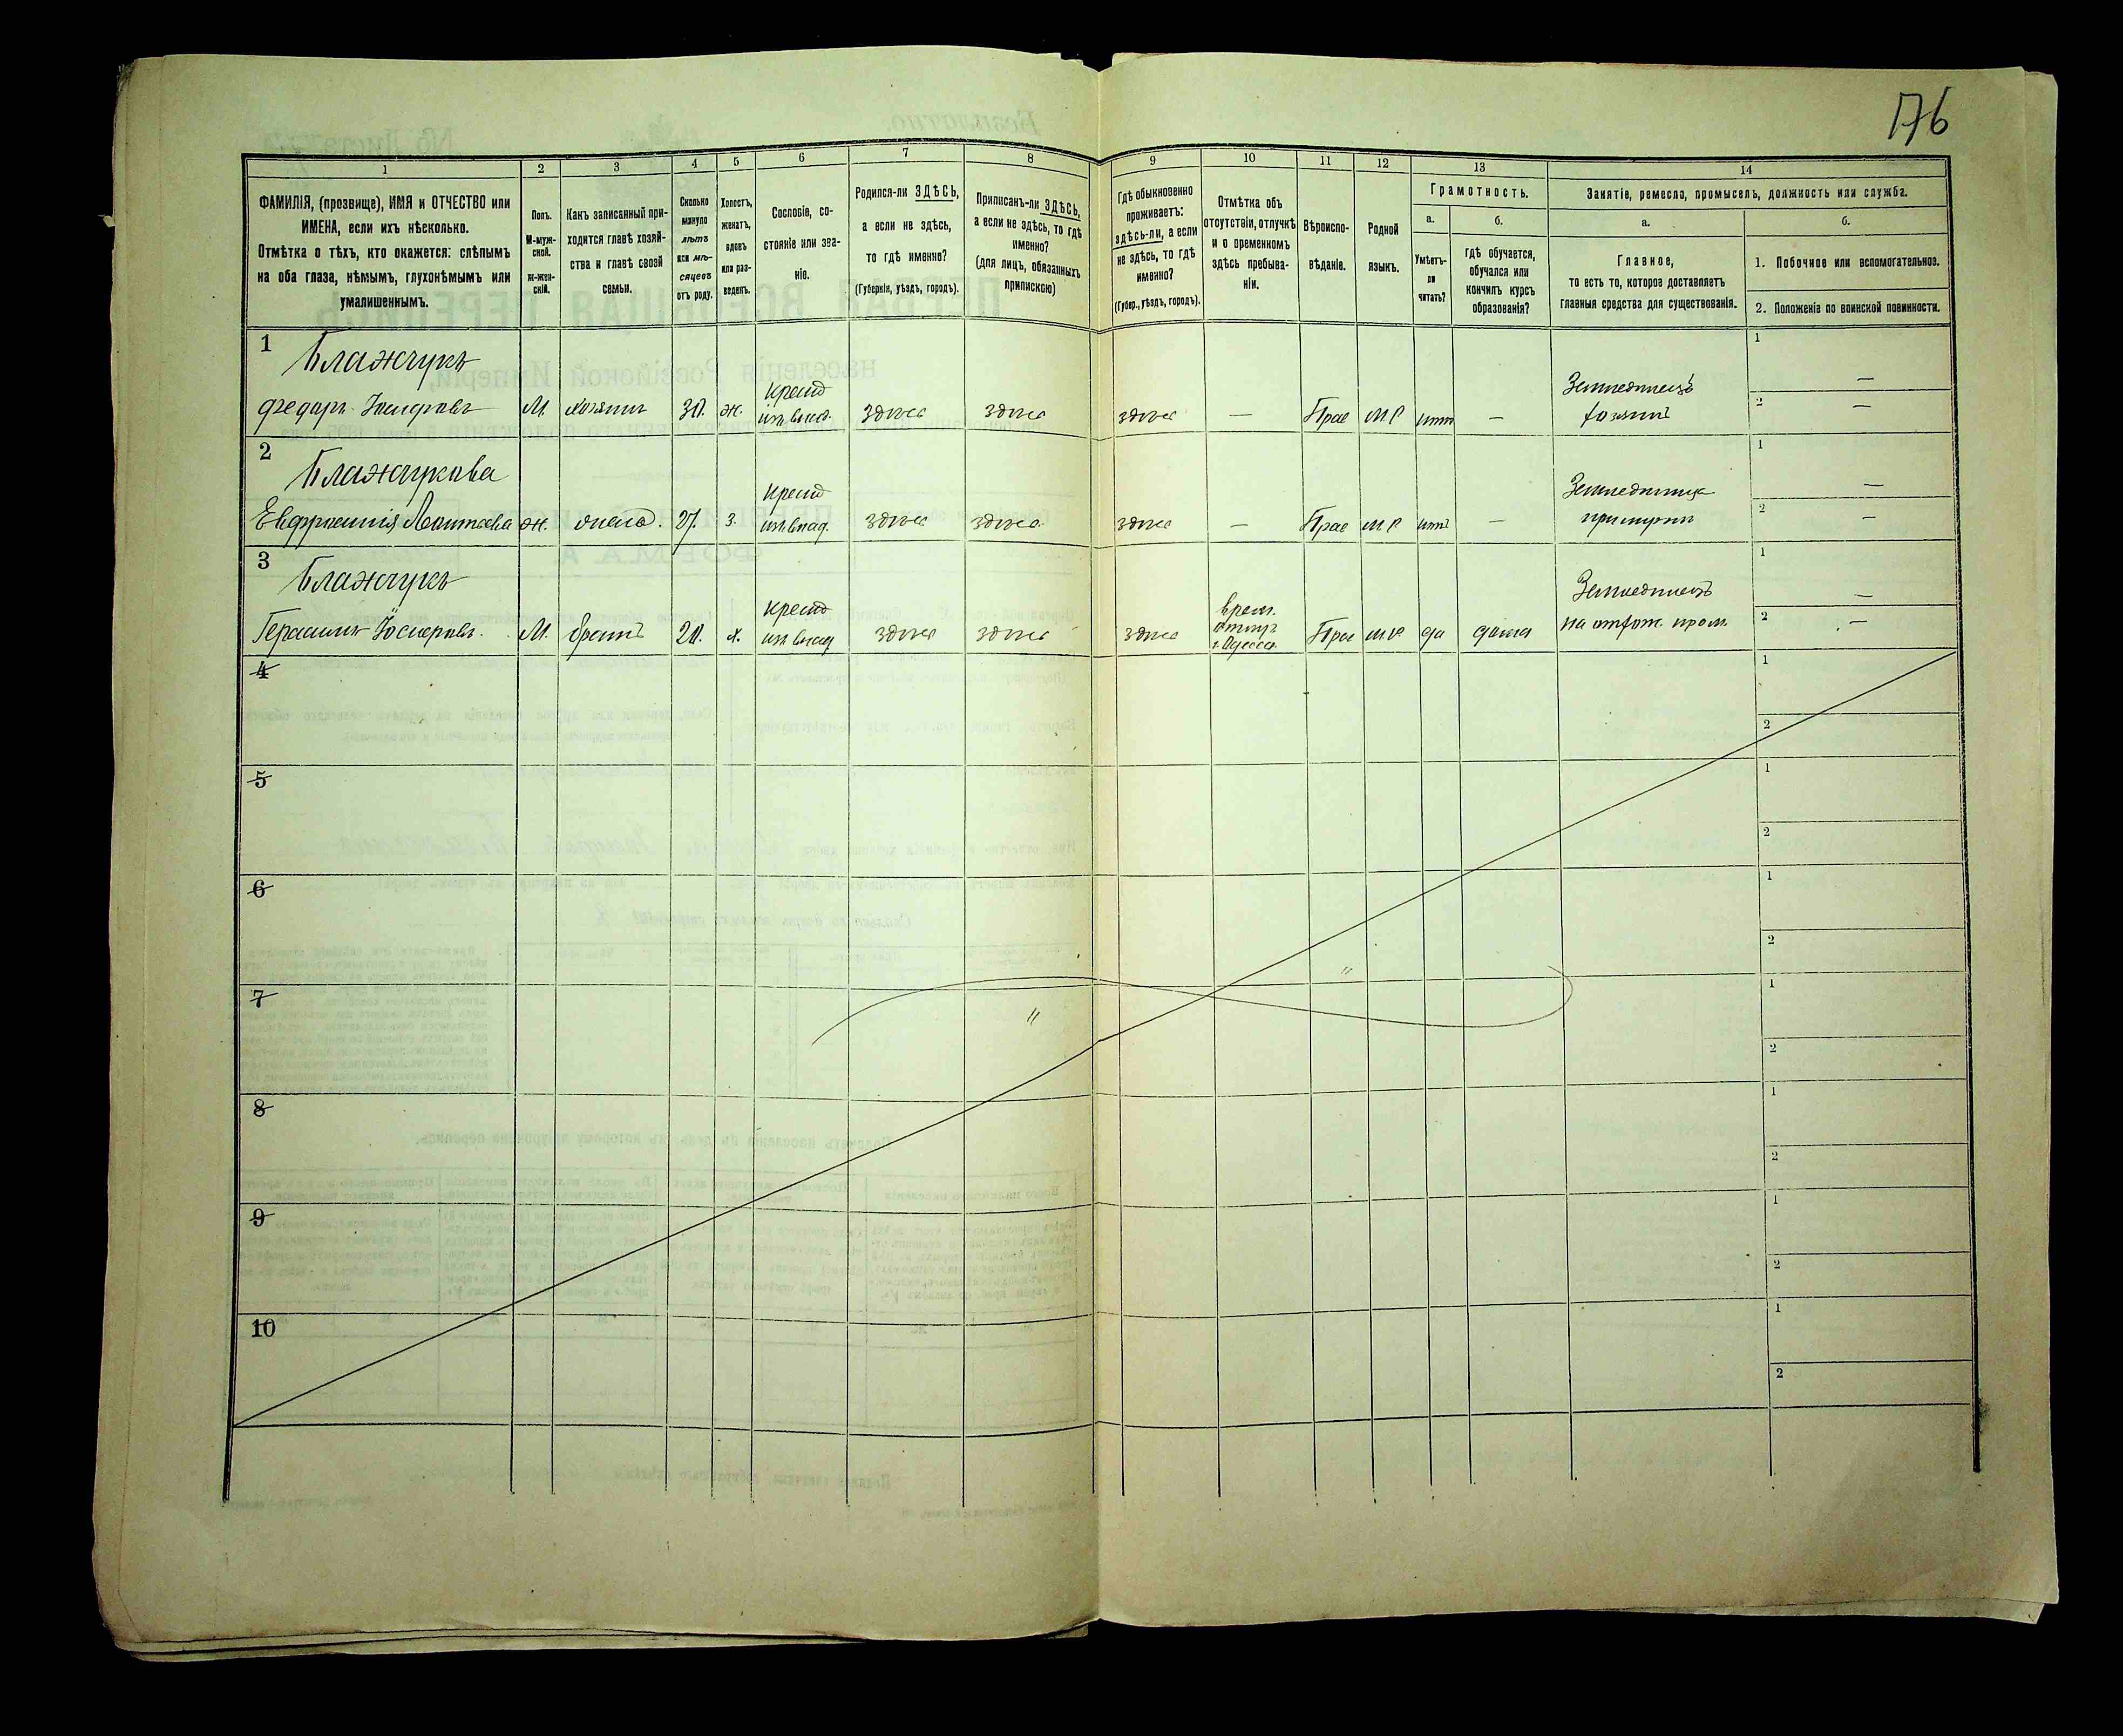 176
1
2
3
4
5
6
7
8
9
10
11
12
13
14
ФАМИЛІЯ, (прозвище), ИМЯ и ОТЧЕСТВО или
ИМЕНА, если ихъ нѣсколько.
Отмѣтка о тѣхъ, кто окажется: слѣпымъ
на оба глаза, нѣмымъ, глухонѣмымъ или
умалишеннымъ.
Полъ.
М-муж-
ской.
Ж-жен-
скій.
Какъ записанный при-
ходится главѣ хозяй-
ства и главѣ своей
семьи.
Сколько
минуло
лѣтъ
или мѣ-
сяцевъ
отъ роду.
Холостъ,
женатъ,
вдовъ
или раз-
веденъ.
Сословіе, со-
стояніе или зва-
ніе.
Родился-ли ЗДѢСЬ,
а если не здѣсь,
то гдѣ именно?
(Губернія, уѣздъ, городъ).
Приписанъ-ли ЗДѢСЬ,
а если не здѣсь, то гдѣ
именно?
(для лицъ, обязанныхъ
припискою)
Гдѣ обыкновенно
проживаетъ:
здѣсь-ли, а если
не здѣсь, то гдѣ
именно?
(Губер., уѣздъ, городъ).
Отмѣтка объ
отсутствіи, отлучкѣ
и о временномъ
здѣсь пребыва-
ніи.
Вѣроиспо-
вѣданіе.
Родной
языкъ.
Грамотность.
а.
Умѣетъ-
ли
читать?
б.
гдѣ обучается,
обучался или
кончилъ курсъ
образованія?
Занятіе, ремесло, промыселъ, должность или служба.
а.
Главное,
то есть то, которое доставляетъ
главныя средства для существованія.
б.
1. Побочное или вспомогательное.
2. Положеніе по воинской повинности.
1
Блажчукъ
Федоръ Іосифовъ М. хозяинъ 30. ж. крест. из влад. здѣсь здѣсь здѣсь — Прав м.р нѣтъ — Земледѣлецъ хозяинъ 1 — 2 —
2
Блажчукова
Евфросинія Леонтьева ж. жена. 27. з. крест из влад. здѣсь здѣсь здѣсь — Прав м.р нѣтъ — Земледѣлица при мужѣ 1 — 2 —
3
Блажчукъ
Герасимъ Іосифовъ. М. братъ 20. х. крест из влад здѣсь здѣсь здѣсь врем. отлуч. г. Одесса. Прав м.р. да дома Земледѣлецъ на отхож. пром. 1 — 2 —
4 1 2
5 1 2
6 1 2
7 1 2
8 1 2
9 1 2
10 1 2